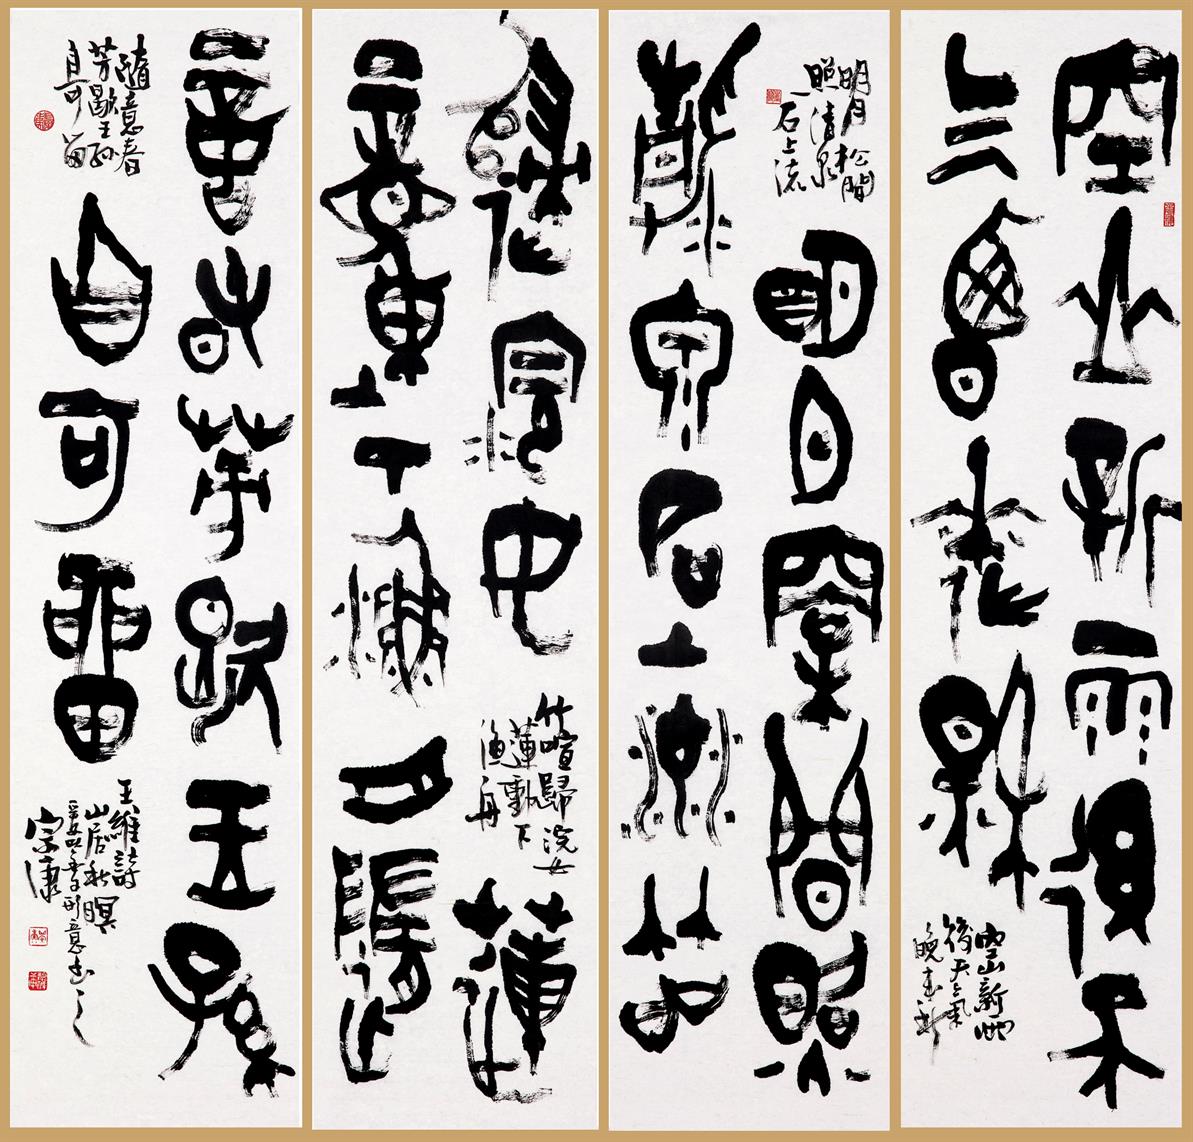 空山新雨後天
气晚來秋
空山新雨
後天氣
晚來秋
明月松間
照清泉
石上流
明月松間照
清泉石上流竹
喧歸浣女
竹喧歸浣女
蓮動下
漁舟
蓮
動下漁舟隨
意春芳歇王孫
隨意春
芳歇王孫
自可留
自可留
王維詩
山居秋暝
形意書之
宗康